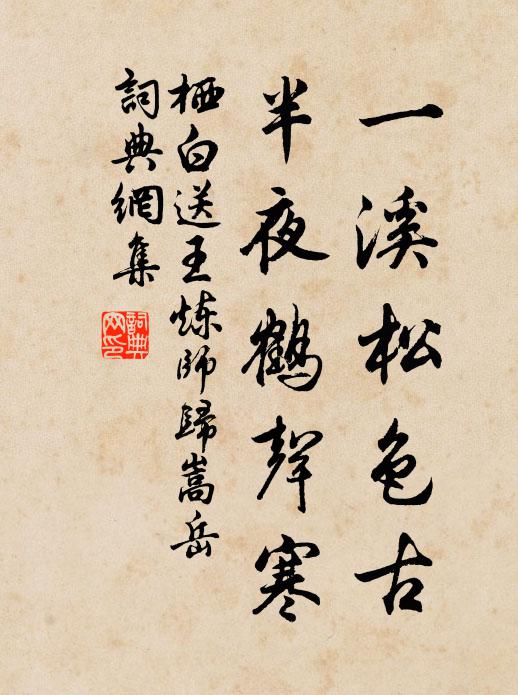 一溪松色古
半夜鹤聲寒
栖白送王炼师歸嵩岳
詞典網集
詞典网印